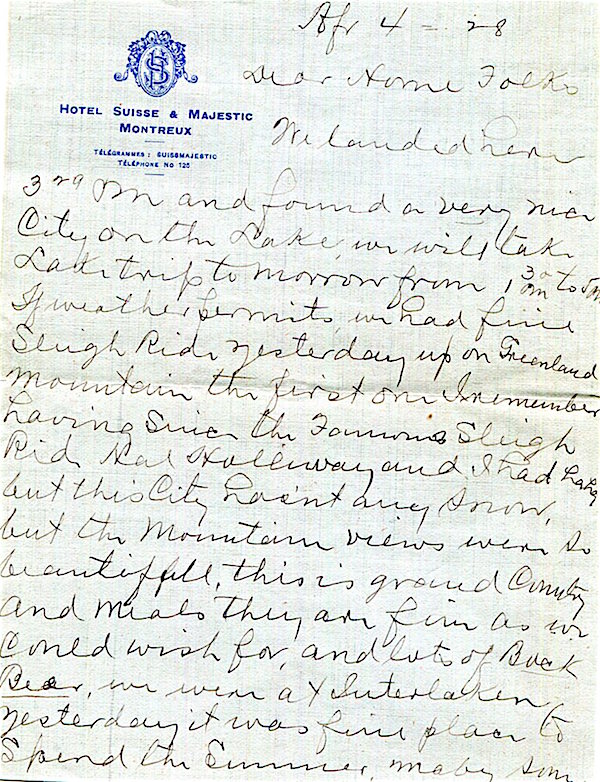 Apr 4 = 28
HOTEL SUISSE & MAJESTIC
MONTREUX
TÉLÉGRAMMES: SUISSMAJESTIC
TÉLÉPHONE No 120
Dear Home Folks
We landed here
3 PM and found a very nice
City on the Lake, we will take
Lake trip to morrow from 1 30 PM to 5 PM
If weather permits, we had fine
Sleigh Ride yesterday up on Greenland
mountain the first one I remember
having since the Famous Sleigh
Ride Hal Holliway and I had haha
but this City hasnt any snow,
but the Mountain views were so
beautifull, this is grand Country
and meals they are fine as we
could wish for, and lots of Bock
Beer, we were at Interlaken
yesterday it was fine place to
spend the Summer, maby som